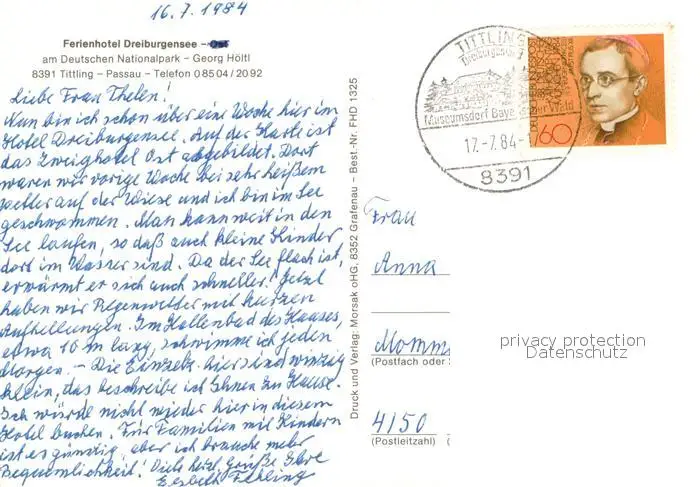 16.7.1984
Ferienhotel Dreiburgensee – Ost
am Deutschen Nationalpark – Georg Höltl
8391 Tittling – Passau – Telefon 0 85 04 / 20 92
Liebe Frau Thelen!
Nun bin ich schon über eine Woche hier im
Hotel Dreiburgensee. Auf der Karte ist
das Zweighotel Ost abgebildet. Dort
waren wir vorige Woche bei sehr heißem
Wetter auf der Wiese und ich bin im See
geschwommen. Man kann weit in den
See laufen, so daß auch kleine Kinder
dort im Wasser sind. Da der See flach ist,
erwärmt er sich auch schneller! Jetzt
haben wir Regenwetter mit kurzen
Aufhellungen. Im Hallenbad des Hauses,
etwa 10 m lang, schwimme ich jeden
Morgen. – Die Einzelz. hier sind winzig
klein, das beschreibe ich Ihnen zu Hause.
Ich würde nicht wieder hier in diesem
Hotel buchen. Für Familien mit Kindern
ist es günstig, aber ich brauche mehr
Bequemlichkeit! Viele herzl. Grüße Ihre
Elsbeth
Druck und Verlag: Morsak oHG, 8352 Grafenau – Best.-Nr. FHD 1325
TITTLING
Dreiburgenland
Museumsdorf Baye
Wald
17.-7.84-
8391
60
Frau
Anna
Momms
(Postfach oder S
4150
(Postleitzahl) (
privacy protection
Datenschutz